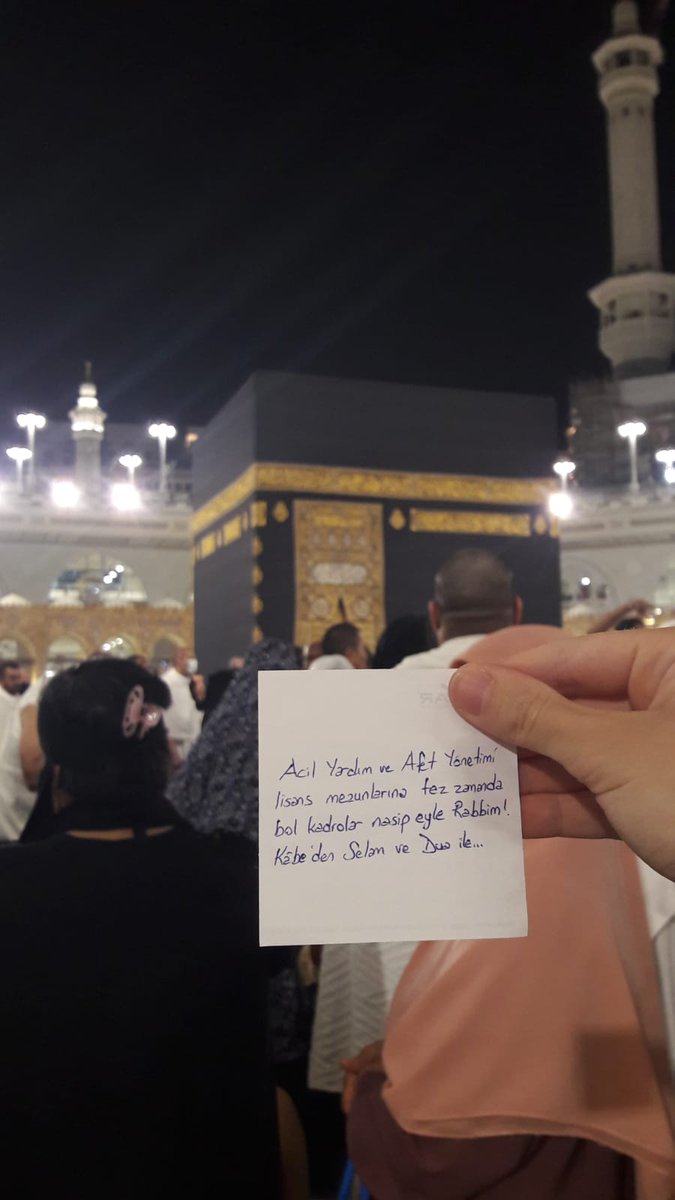 Acil Yardım ve Afet Yönetimi
lisans mezunlarına tez zamanda
bol kadrolar nasip eyle Rabbim!
Kâbe'den Selam ve Dua ile...